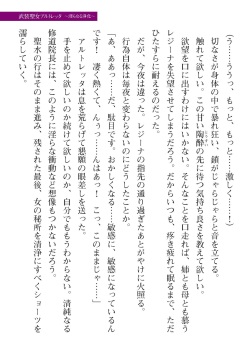 武装聖女アルトレッタ
（う……ううっ、もっと、もっと……激しく……！）
切なさが身体の中で暴れ狂い、鎖がじゃらじゃらと音を立てる。
触れて欲しい。この甘い陶酔の先に待つ気持ち良さを教えて欲しい。
欲望を口に出すわけにはいかない。そんなことを口走れば、姉とも母とも慕う
レジーナを失望させてしまうだろう。だからいつも、疼き疲れて眠るまで、ただ
ひたすらに耐えるのだった。
だが、今夜は違った。レジーナの指先の通り過ぎたあとがやけに火照る。
行為自体は毎夜と変わらないのにどうしたことか。
「あ、ああっ……だ、駄目です、おかしくなる……敏感に、敏感になっているん
です！　凄く熱くて、んぅっ……んはぁ！　こっ、このままじゃ……！」
アルトレッタは息を荒らげて懇願の眼差しを送った。
手を止めて欲しいのか続けて欲しいのか、自分でももうわからない。清純なる
修道院長には、このように淫らな衝動など想像もつかないだろう。
聖水の行はそのまま進み、残された最後、女の秘所を清浄にすべくショーツを
濡らしていく。